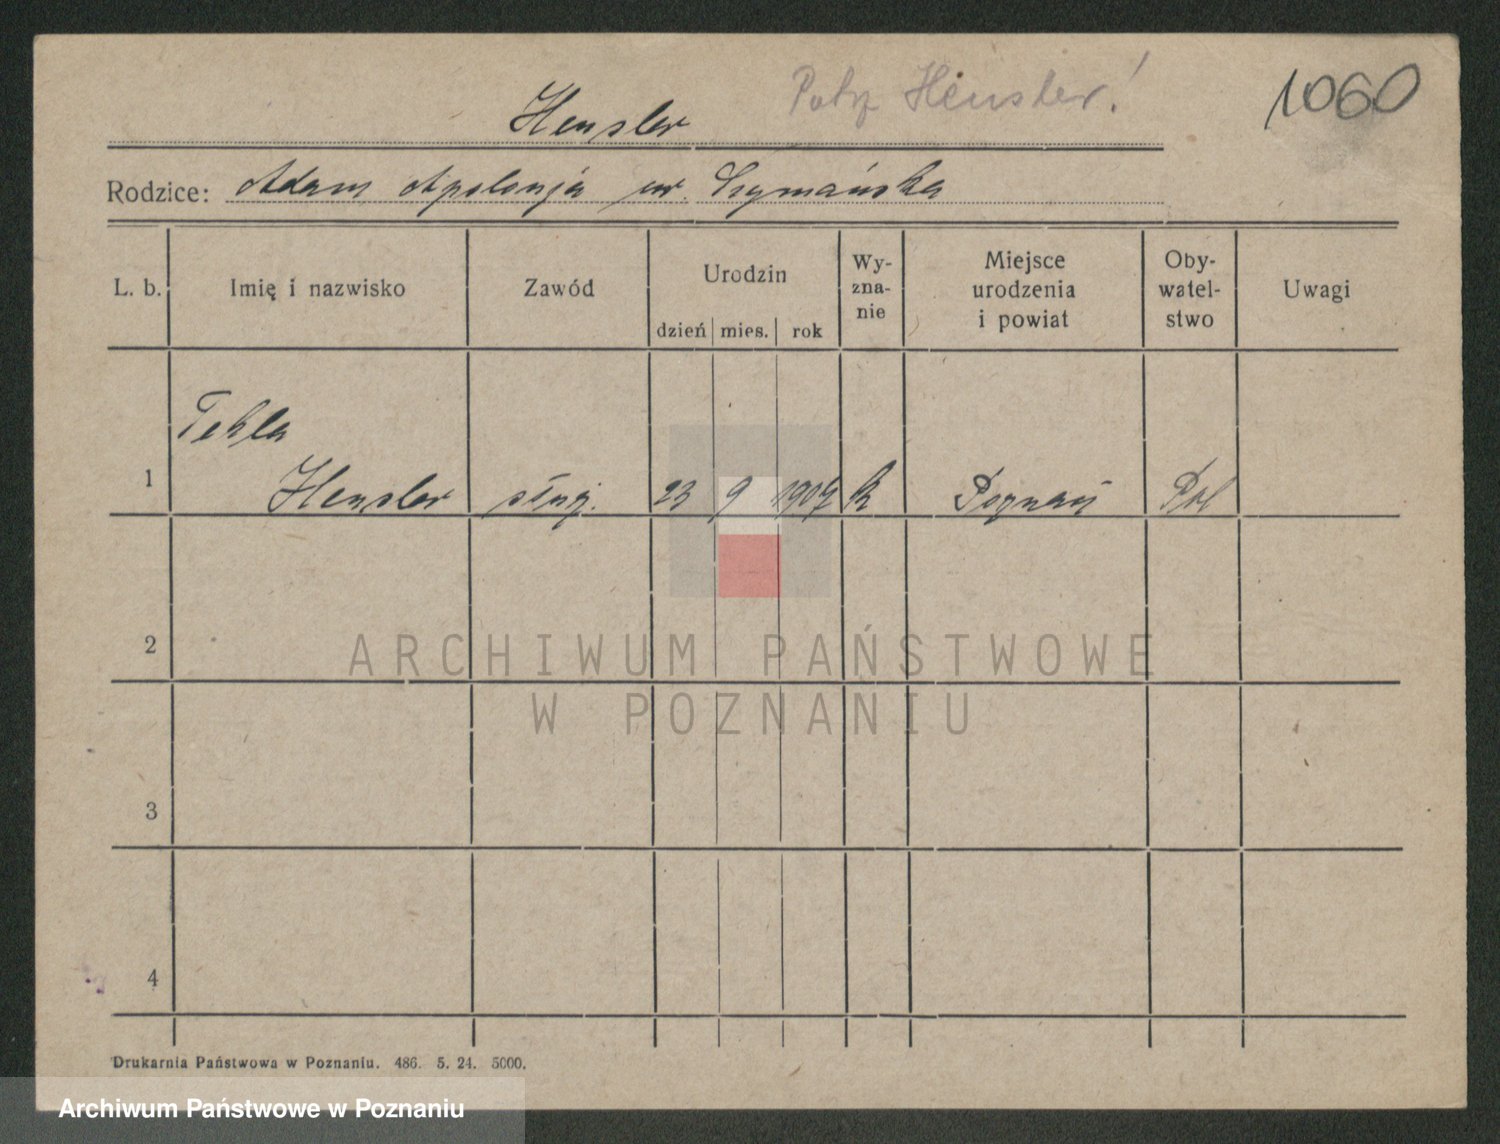 Hensler
Patrz Heinsler!
1060
Rodzice: Adam Apolonja ur. Szymańska
L. b.
Imię i nazwisko
Zawód
Urodzin
dzień mies. rok
Wy-
zna-
nie
Miejsce
urodzenia
i powiat
Oby-
watel-
stwo
Uwagi
Tekla
1 Hensler służ. 23 9 1907 k Poznań Pol
2
3
4
ARCHIWUM PAŃSTWOWE
W POZNANIU
Drukarnia Państwowa w Poznaniu. 486. 5. 24. 5000.
Archiwum Państwowe w Poznaniu